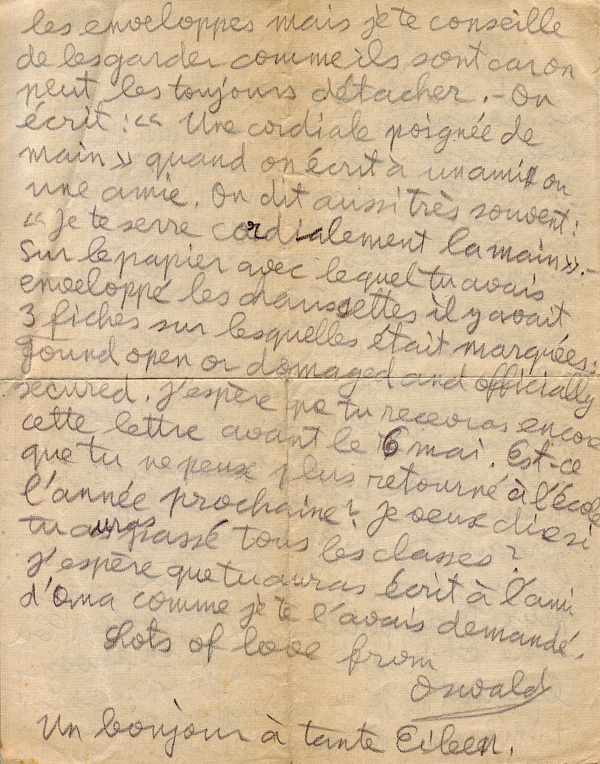 les enveloppes mais je te conseille
de les garder comme ils sont car on
peut les toujours détacher. - On
écrit : «« Une cordiale poignée de
main »» quand on écrit à un ami ou
une amie. On dit aussi très souvent :
«« Je te serre cordialement la main »». -
Sur le papier avec lequel tu avais
enveloppé les chaussettes il y avait
3 fiches sur lesquelles était marquées :
found open or domaged and officially
secured. J'espère que tu recevras encore
cette lettre avant le 6 mai. Est-ce
que tu ne peux plus retourné à l'école
l'année prochaine? Je veux dire si
tu auras passé tous les classes?
J'espère que tu auras écrit à l'ami
d'Oma comme je te l'avais demandé.
Lots of love from
Oswald
Un bonjour à tante Eileen.